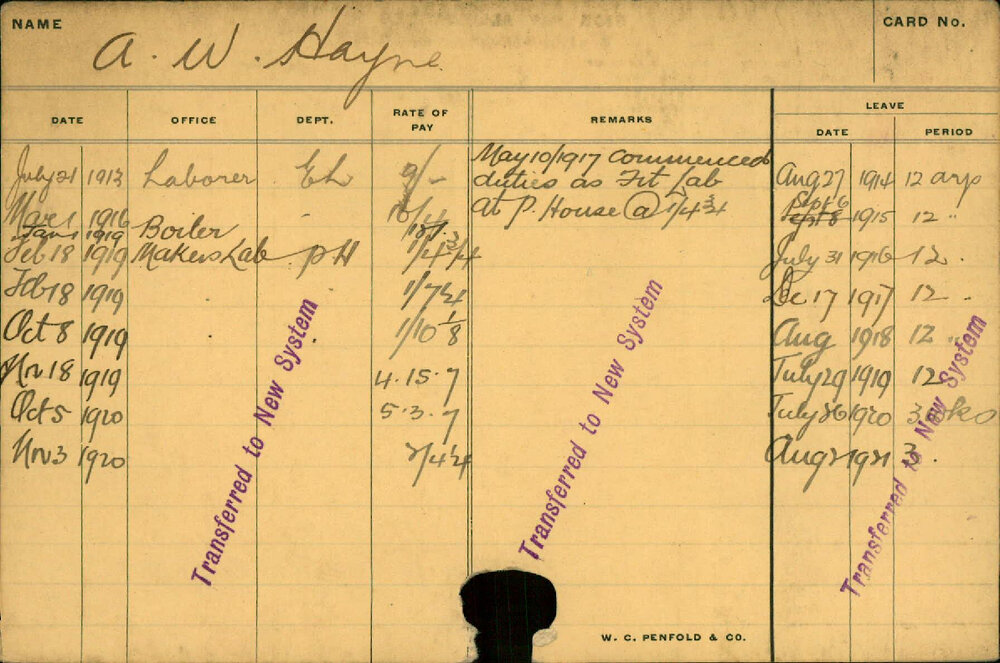 NAME
A. W. Hayne
CARD No.
DATE OFFICE DEPT. RATE OF PAY REMARKS LEAVE
DATE PERIOD
July 21 1913 Laborer EL 9/- May 10/1917 Commenced Aug 27 1914 12 days
duties as Fit Lab
Mar 1 1916 10/4 at P. House @ 1/4¾ Sept 6
Sept 8 1915 12 "
Jan 1 1919 Boiler
Feb 18 1919 Makers Lab PH 1/4¾ July 31 1916 12 .
Feb 18 1919 1/7¼ Dec 17 1917 12 .
Oct 8 1919 1/10⅛ Aug 1918 12 "
Nov 18 1919 4.15.7 July 29 1919 12
Oct 5 1920 5.3.7 July 26 1920 3 wks
Nov 3 1920 2/4¼ Aug 2 1921 3 .
Transferred to New System
Transferred to New System
Transferred to New System
W. C. PENFOLD & CO.